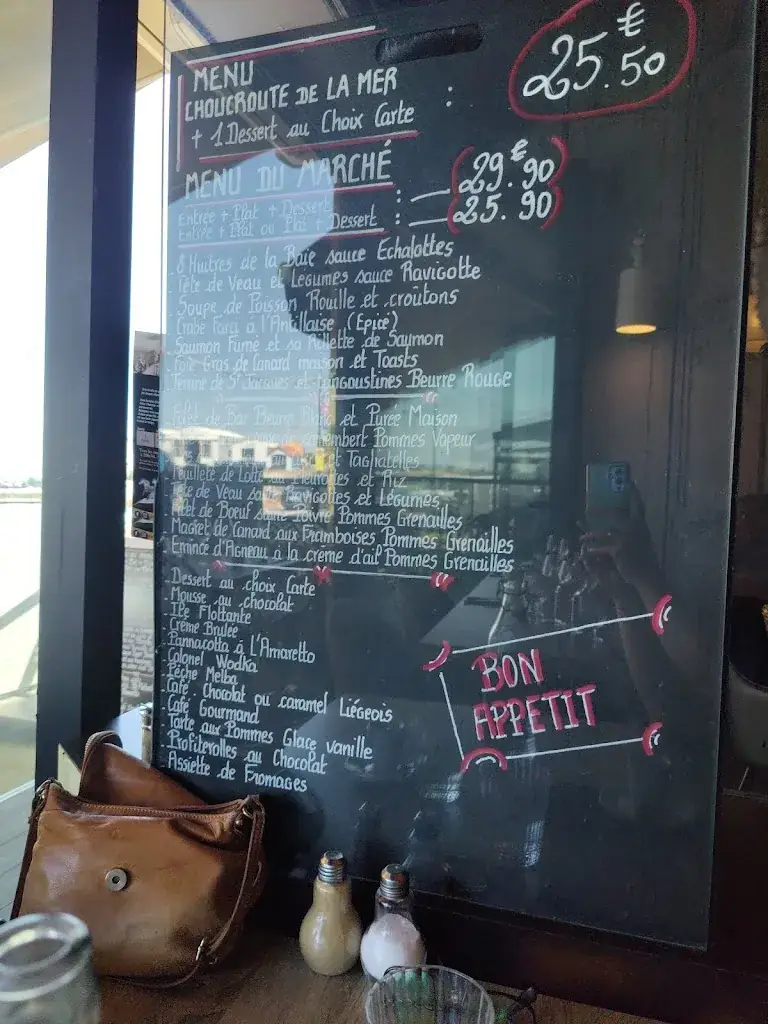 MENU
CHOUCROUTE DE LA MER
+ 1 Dessert au Choix Carte :
25.50 €
MENU DU MARCHÉ
Entrée + Plat + Dessert : 29.€90
Entrée + Plat ou Plat + Dessert : 25.90
. 8 Huitres de la Baie sauce Echalottes
. Tête de Veau et Légumes sauce Ravigotte
. Soupe de Poisson Rouille et croûtons
. Crabe Farci à l'Antillaise (Epicé)
. Saumon Fumé et sa Rillette de Saumon
. Foie Gras de Canard maison et Toasts
. Terrine de St Jacques et Langoustines Beurre Rouge
de Bar Beurre Blanc et Purée Maison
Camembert Pommes Vapeur
et Tagliatelles
Feuilleté de Lotte et Riz
Tête de Veau sauce Ravigottes et Légumes
Filet de Boeuf sauce Poivre Pommes Grenailles
. Magret de Canard aux Framboises Pommes Grenailles
. Emincé d'Agneau à la crème d'ail Pommes Grenailles
. Dessert au choix Carte
. Mousse au chocolat
. Ile Flottante
. Crème Brulée
. Pannacotta à L'Amaretto
. Colonel Wodka
. Pêche Melba
. Café . Chocolat ou caramel Liégeois
. Café Gourmand
. Tarte aux Pommes Glace vanille
. Profiterolles au Chocolat
. Assiette de Fromages
BON
APPETIT